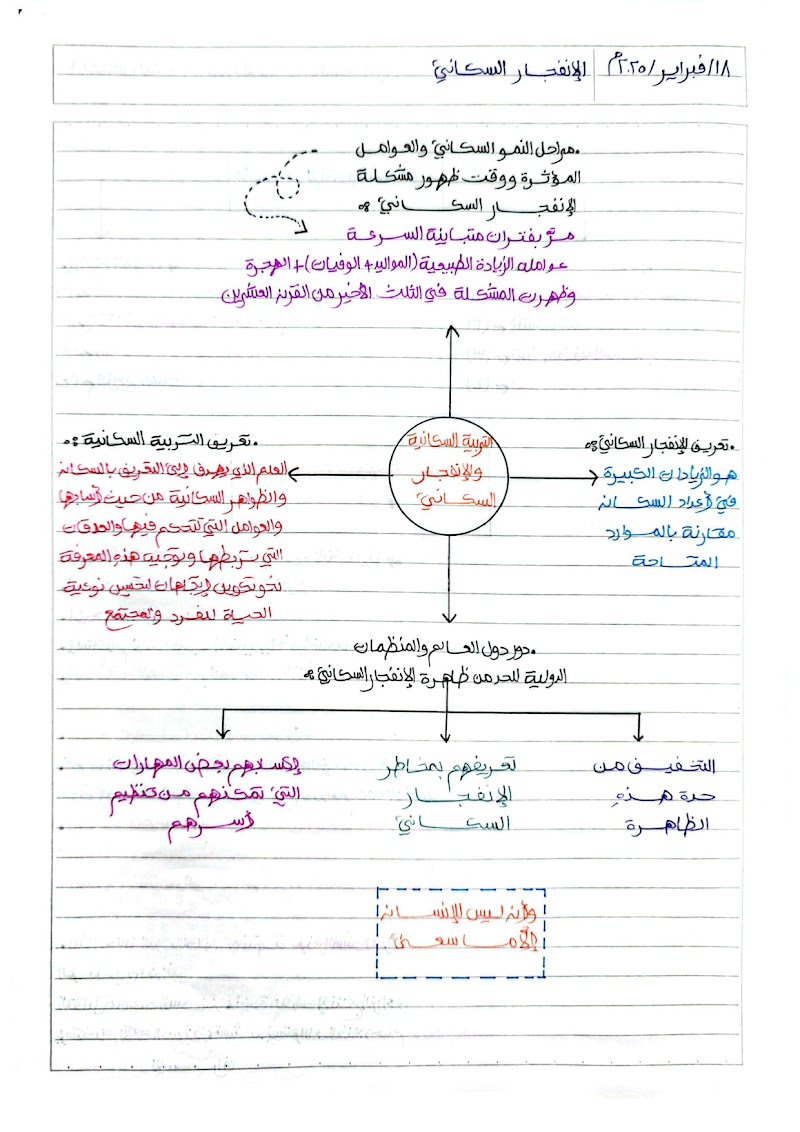 ١٨/فبراير/٢٠٢٥م
الإنفجار السكاني
•مراحل النمو السكاني والعوامل
المؤثرة ووقت ظهور مشكلة
الإنفجار السكاني:
مرّ بفترات متباينة السرعة
عوامله الزيادة الطبيعية (المواليد+الوفيات)+الهجرة
وظهرت المشكلة في الثلث الأخير من القرن العشرين
التربية السكانية
والإنفجار
السكاني
•تعريف الإنفجار السكاني:
هو الزيادات الكبيرة
في أعداد السكان
مقارنة بالموارد
المتاحة
•تعريف التربية السكانية:
العلم الذي يهدف إلى التعريف بالسكان
والظواهر السكانية من حيث أسبابها
والعوامل التي تتحكم فيها والعلاقات
التي تربطها وتوجيه هذه المعرفة
نحو تكوين إتجاهات لتحسين نوعية
الحياة للفرد والمجتمع
•دور دول العالم والمنظمات
الدولية للحد من ظاهرة الإنفجار السكاني:
التخفيف من
حدة هذه
الظاهرة
تعريفهم بمخاطر
الإنفجار
السكاني
إكسابهم بعض المهارات
التي تمكنهم من تنظيم
أسرهم
وأن ليس للإنسان
إلا ما سعى